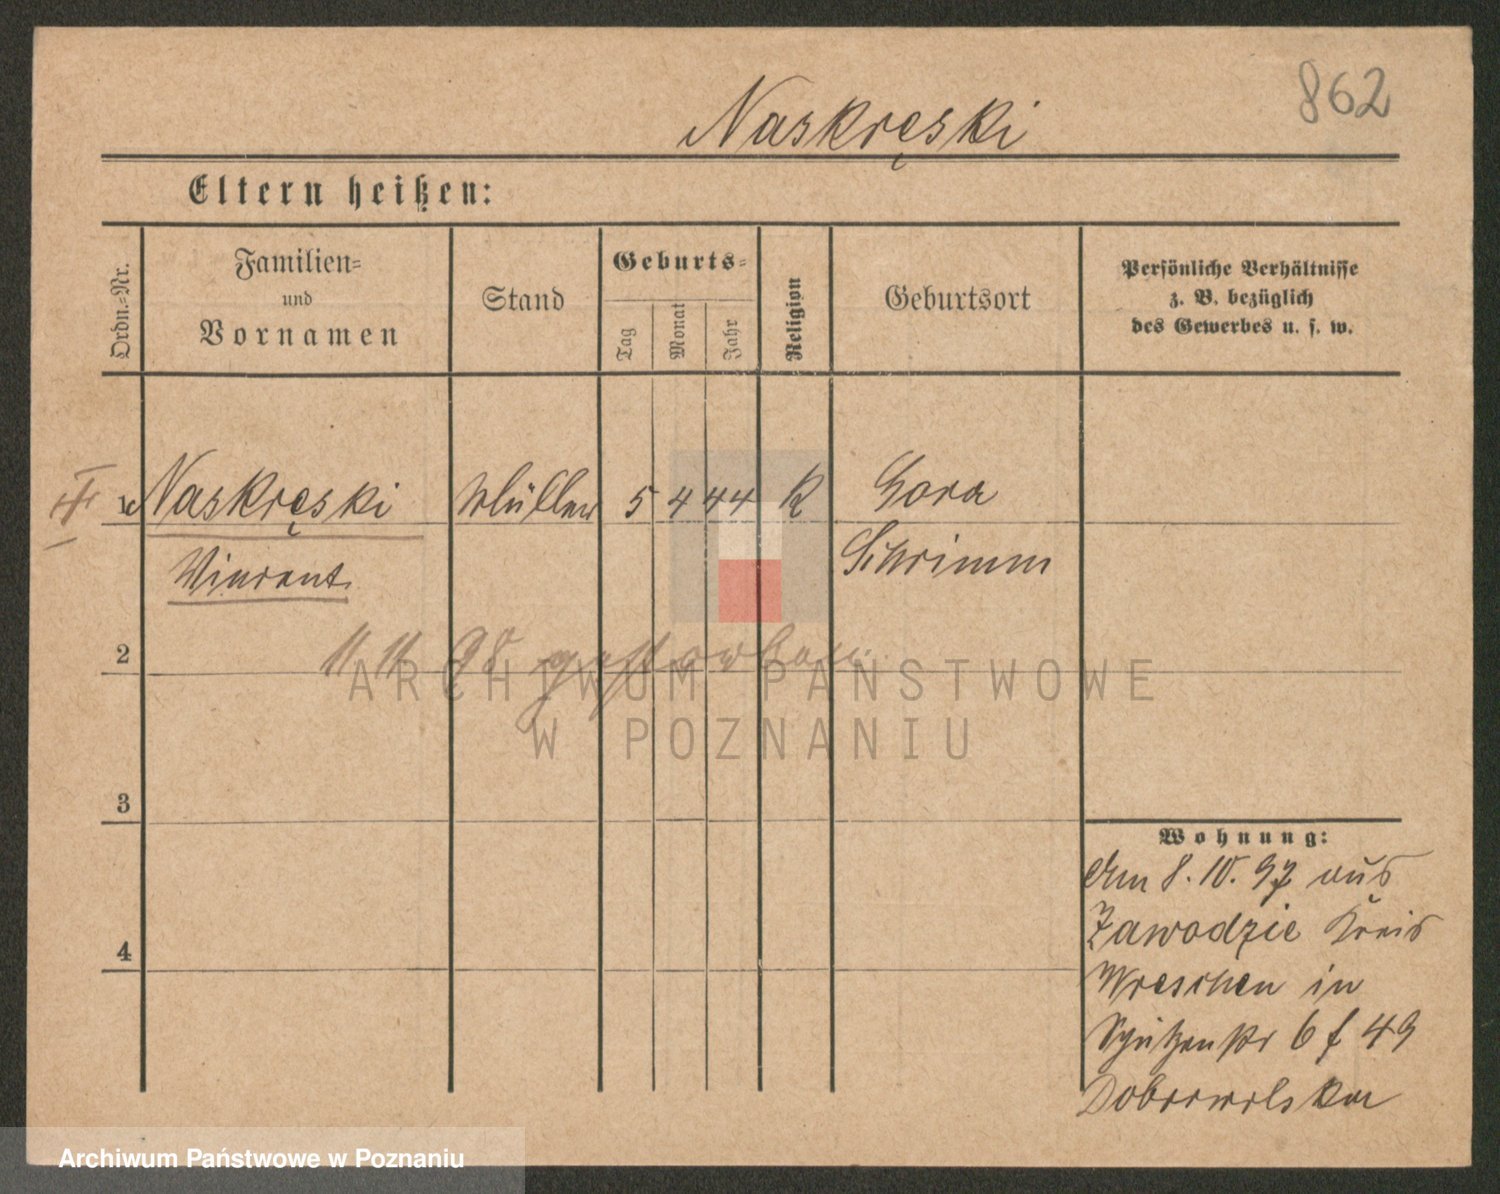 862
Naskręski
Eltern heißen:
Ordn.-Nr.
Familien-
und
Vornamen
Stand
Geburts-
Tag
Monat
Jahr
Religion
Geburtsort
Persönliche Verhältnisse
z. B. bezüglich
des Gewerbes u. s. w.
1 Naskręski Müller 5 4 44 K Gora
Vincent Schrimm
2
11 11 98 gestorben
ARCHIWUM PAŃSTWOWE
W POZNANIU
3
Wohnung:
Am 8. 10. 97 aus
Zawodzie Kreis
4
Wreschen in
Schützenstr 6 f 49
Archiwum Państwowe w Poznaniu